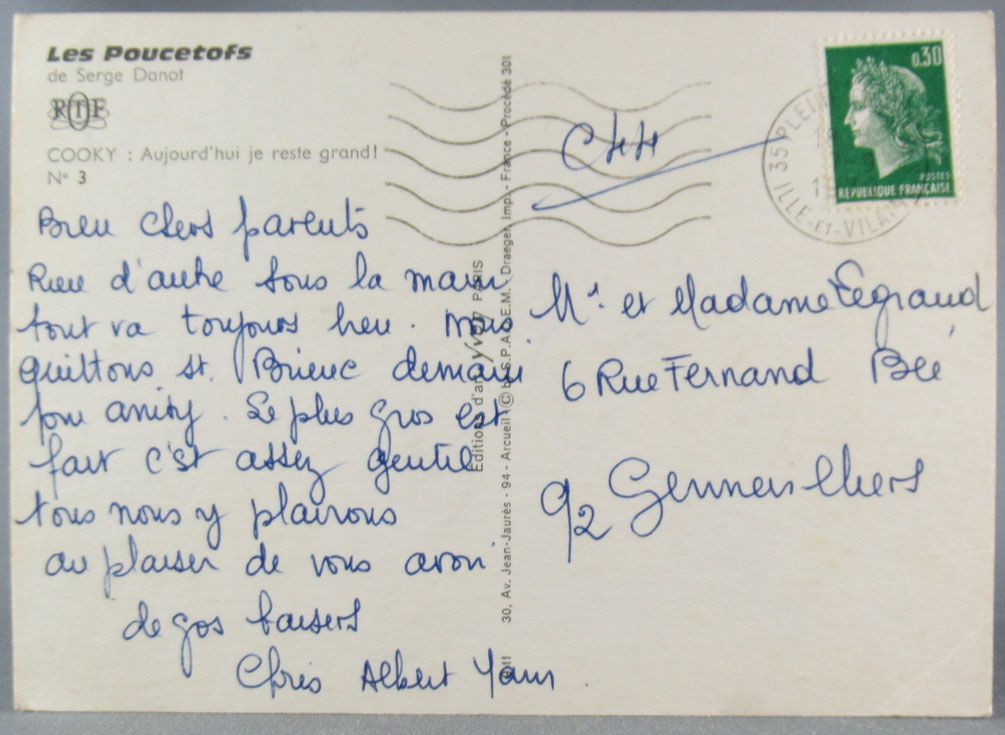 Les Poucetofs
de Serge Danot
COOKY : Aujourd'hui je reste grand!
N° 3
Bien chers parents
Rien d'autre sous la main
tout va toujours bien. Nous
quittons St. Brieuc demain
pour
Le plus gros est
fait c'est assez gentil
tous nous y plairons
au plaisir de vous avoir
de gos baisers
Chris Albert Yann
Editions d'art yvon PARIS
30, Av. Jean-Jaurès - 94 - Arcueil - © by S.P.A.D.E.M. - Draeger, Imp. - France - Procédé 301
0,30
POSTES
REPUBLIQUE FRANÇAISE
35 PLEI
ILLE-ET-VILAI
Mr et Madame Legrand
6 Rue Fernand
92 Gennevilliers